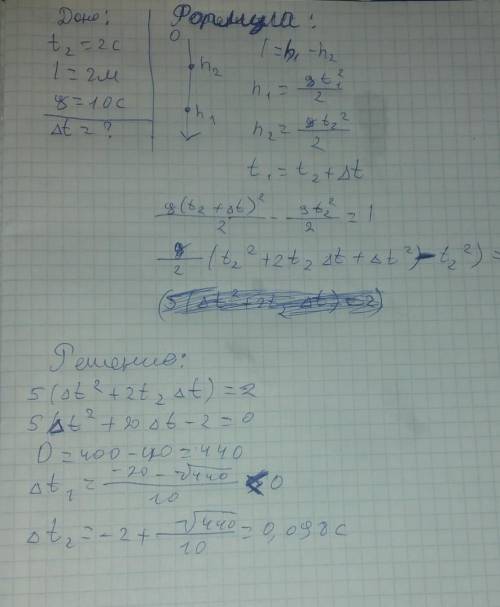 Дано:
t₂ = 2с
l = 2м
g = 10с
Δt = ?
Формула:
0
h₂
h₁
l = h₁ - h₂
h₁ = gt₁²/2
h₂ = gt₂²/2
t₁ = t₂ + Δt
g(t₂ + Δt)²/2 - gt₂²/2 = l
g/2 (t₂² + 2t₂ Δt + Δt²) - t₂²) =
Решение:
5(Δt² + 2t₂ Δt) = 2
5Δt² + 20 Δt - 2 = 0
D = 400 - 40 = 440
Δt₁ = (-20 - √440)/10 < 0
Δt₂ = -2 + √440/10 = 0,098с